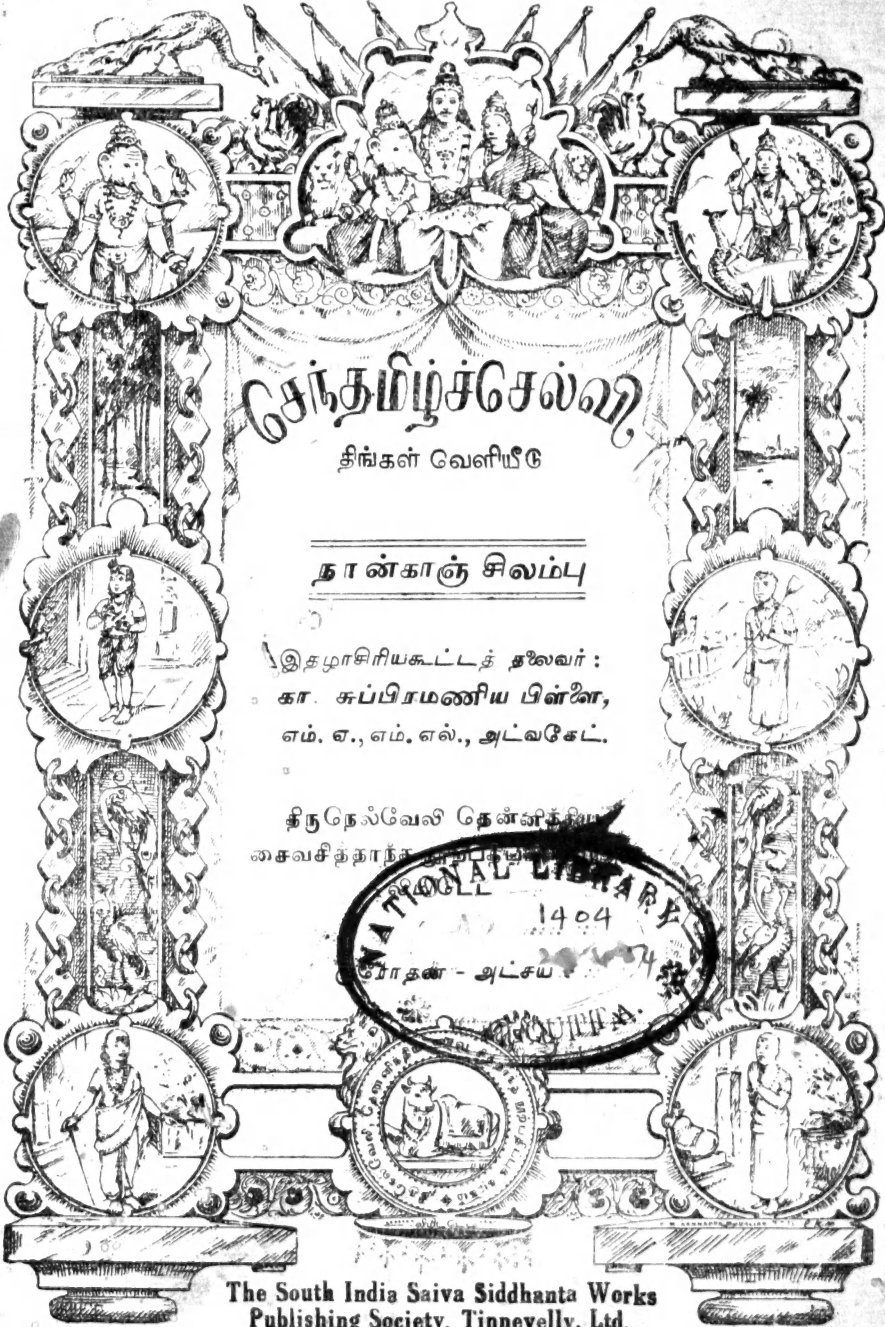 செந்தமிழ்ச்செல்வி
திங்கள் வெளியீடு
நான்காஞ் சிலம்பு
இதழாசிரியகூட்டத் தலைவர் :
கா. சுப்பிரமணிய பிள்ளை,
எம். ஏ., எம். எல்., அட்வகேட்.
திருநெல்வேலி
சைவசித்தாந்த
NATIONAL LIBRARY
1404
- அட்சய
The South India Saiva Siddhanta Works
Publishing Society, Tinnevelly, Ltd.